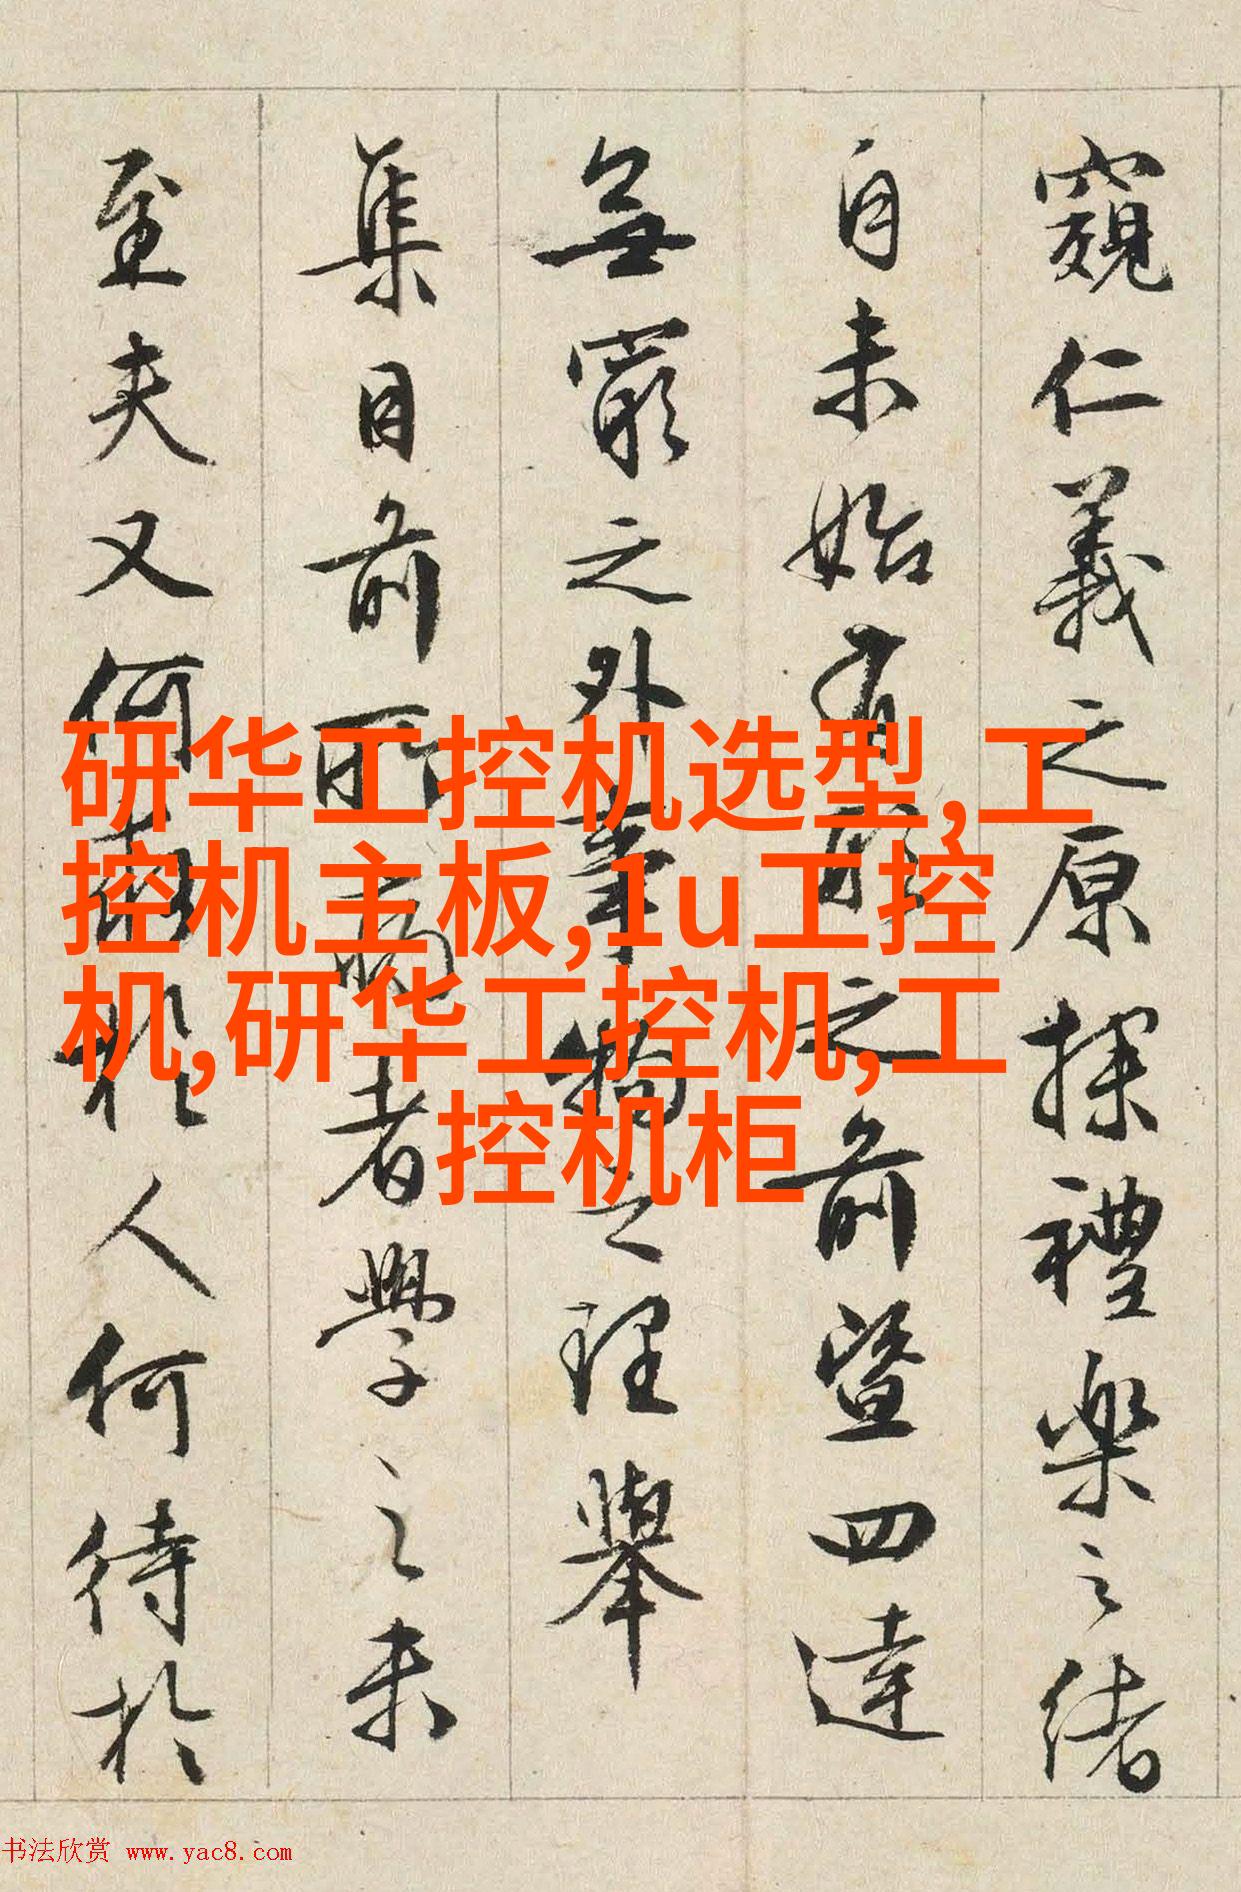 窺仁義之原探禮樂之緒
自未始有形之前暨四達
無窮之外事物之理舉
集目前所病者學之未
至夫又何於人何待於
研华工控机选型,工
控机主板,1u工控
机,研华工控机,工
控机柜
书法欣赏 www.yac8.com